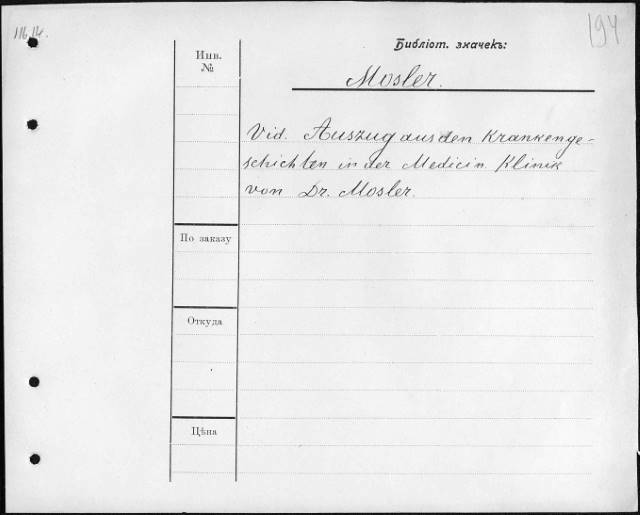 194
Библіот. значекъ:
Инв.
№
Mosler.
Vid. Auszug aus den Krankenge-
schichten in der Medicin. Klinik
von Dr. Mosler.
По заказу
Откуда
Цѣна